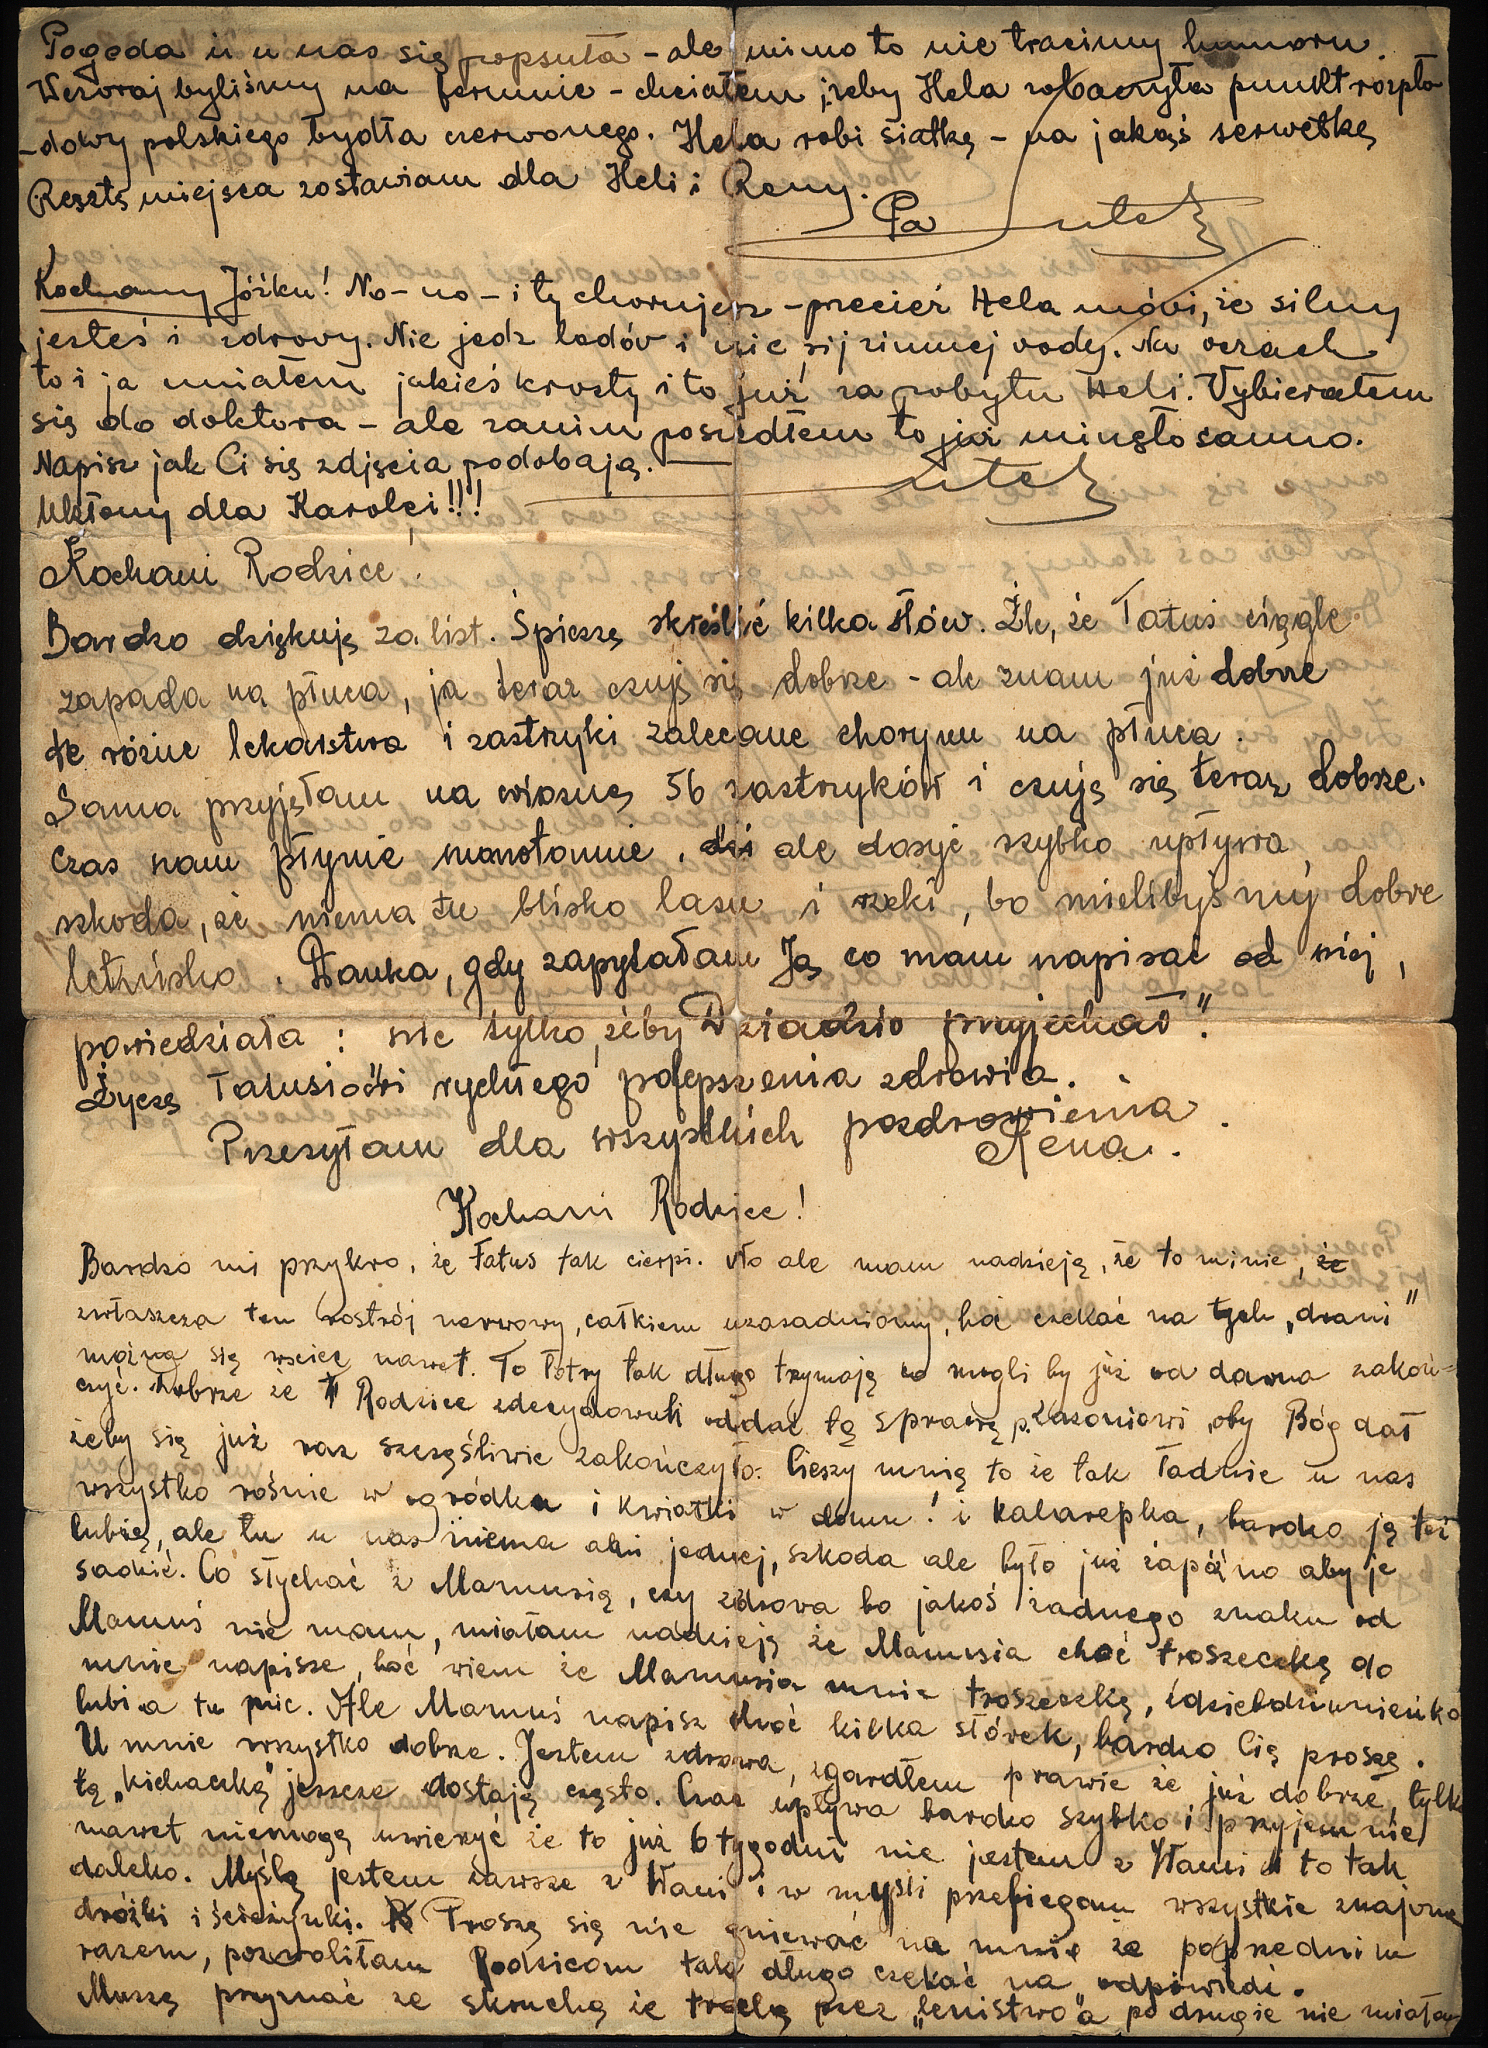 Pogoda i u nas się popsuła - ale mimo to nie tracimy humoru.
Wczoraj byliśmy na fermie - chciałem, żeby Hela zobaczyła punkt rozpło
-dowy polskiego bydła czerwonego. Hela robi siatkę - na jakąś serwetkę
Resztę miejsca zostawiam dla Heli i Reny.
Pa
Kochany Józku! No - no - i ty chorujesz - przecież Hela mówi, że silny
jesteś i zdrowy. Nie jedz lodów i nie pij zimnej wody. Na oczach
to i ja miałem jakieś krosty i to już za pobytu Heli. Wybierałem
się do doktora - ale zanim poszedłem to już minęło samo.
Napisz jak Ci się zdjęcia podobają.
Ukłony dla Karolci!!!
Kochani Rodzice!
Bardzo dziękuję za list. Śpieszę skreślić kilka słów. Źle, że Tatuś ciągle
zapada na płuca, ja teraz czuję się dobrze - ale znam już dobrze
te różne lekarstwa i zastrzyki zalecane chorym na płuca.
Sama przyjęłam na wiosnę 56 zastrzyków i czuję się teraz dobrze.
Czas nam płynie monotonnie, ale dosyć szybko upływa,
szkoda, że niema tu blisko lasu i rzeki, bo mielibyśmy dobre
letnisko. Hanka, gdy zapytałam Ją co mam napisać od niej,
powiedziała: nic tylko, żeby Dziadzio przyjechał".
Życzę Tatusiowi rychłego polepszenia zdrowia.
Przesyłam dla wszystkich pozdrowienia.
Rena.
Kochani Rodzice!
Bardzo mi przykro, że Tatuś tak cierpi. No ale mam nadzieją, że to minie, że
zwłaszcza ten rostrój nerwowy, całkiem uzasadniony, boć czekać na tych „drani"
można się wściec nawet. To łotry tak długo trzymają co mogli by już od dawna zakoń-
czyć. Dobrze że Rodzice zdecydowali oddać tą sprawę p. oby Bóg dał
żeby się już raz szczęśliwie zakończyło. Cieszy mnię to że tak ładnie u nas
wszystko rośnie w ogródku i kwiatki w domu! i kalarepka, bardzo ją też
lubię, ale tu u nas niema ani jednej, szkoda ale było już zapóźno aby je
sadzić. Co słychać z Mamusią, czy zdrowa bo jakoś żadnego znaku od
Mamuś nie mam, miałam nadzieję że Mamusia choć troszeczkę do
mnie napisze, boć wiem że Mamusia mnie troszeczkę,
lubi a tu nic. Ale Mamuś napisz choć kilka słówek, bardzo Cię proszę.
U mnie wszystko dobrze. Jestem zdrowa, z gardłem prawie że już dobrze, tylko
tą „kichaczką" jeszcze dostaję często. Czas upływa bardzo szybko i przyjemnie
nawet niemogę uwierzyć że to już 6 tygodni nie jestem z Wami i to tak
daleko. Myślą jestem zawsze z Wami i w myśli przebiegam wszystkie znajome
dróżki i ścieżynki. Proszę się nie gniewać na mnie że poprzednim
razem, pozwoliłam Rodzicom tak długo czekać na odpowiedź.
Muszę przyznać ze skruchą że trochę przez „lenistwo" a po drugie nie miałam